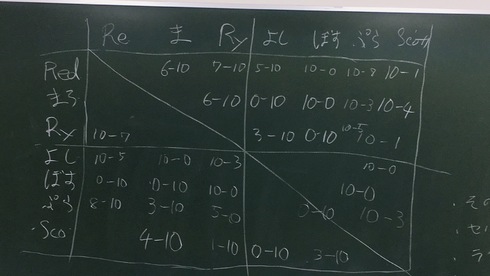 Re ま Ry よし ぽす ぷら Scott
Red 6-10 7-10 5-10 10-0 10-8 10-1
まろ 6-10 0-10 10-0 10-3 10-4
Ry 10-7 3-10 0-10 10-5 10-1
よし 10-5 10-0 10-3 10-0
ぽす 0-10 0-10 10-0 10-0
ぷら 8-10 3-10 5-10 3-10 10-3
Sco 4-10 1-10 0-10 3-10